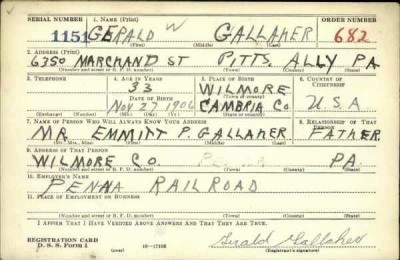 SERIAL NUMBER 1. NAME (Print) ORDER NUMBER
1151 GERALD W GALLAHER 682
(First) (Middle) (Last)
2. ADDRESS (Print)
6350 MARCHAND ST PITTS. ALLY PA.
(Number and street or R. F. D. number) (Town) (County) (State)
3. TELEPHONE 4. AGE IN YEARS 5. PLACE OF BIRTH 6. COUNTRY OF CITIZENSHIP
33 WILMORE
DATE OF BIRTH (Town or county)
Nov 27 1906 CAMBRIA CO. U.S.A
(Exchange) (Number) (Mo.) (Day) (Yr.) (State or country)
7. NAME OF PERSON WHO WILL ALWAYS KNOW YOUR ADDRESS 8. RELATIONSHIP OF THAT PERSON
MR. EMMITT P. GALLAHER FATHER
(Mr., Mrs., Miss) (First) (Middle) (Last)
9. ADDRESS OF THAT PERSON
WILMORE CO. PENNA PA.
(Number and street or R. F. D. number) (Town) (County) (State)
10. EMPLOYER'S NAME
PENNA RAILROAD
11. PLACE OF EMPLOYMENT OR BUSINESS
(Number and street or R. F. D. number) (Town) (County) (State)
I AFFIRM THAT I HAVE VERIFIED ABOVE ANSWERS AND THAT THEY ARE TRUE.
REGISTRATION CARD
D. S. S. Form 1 (over) 16-17105 Gerald Gallaher
(Registrant's signature)